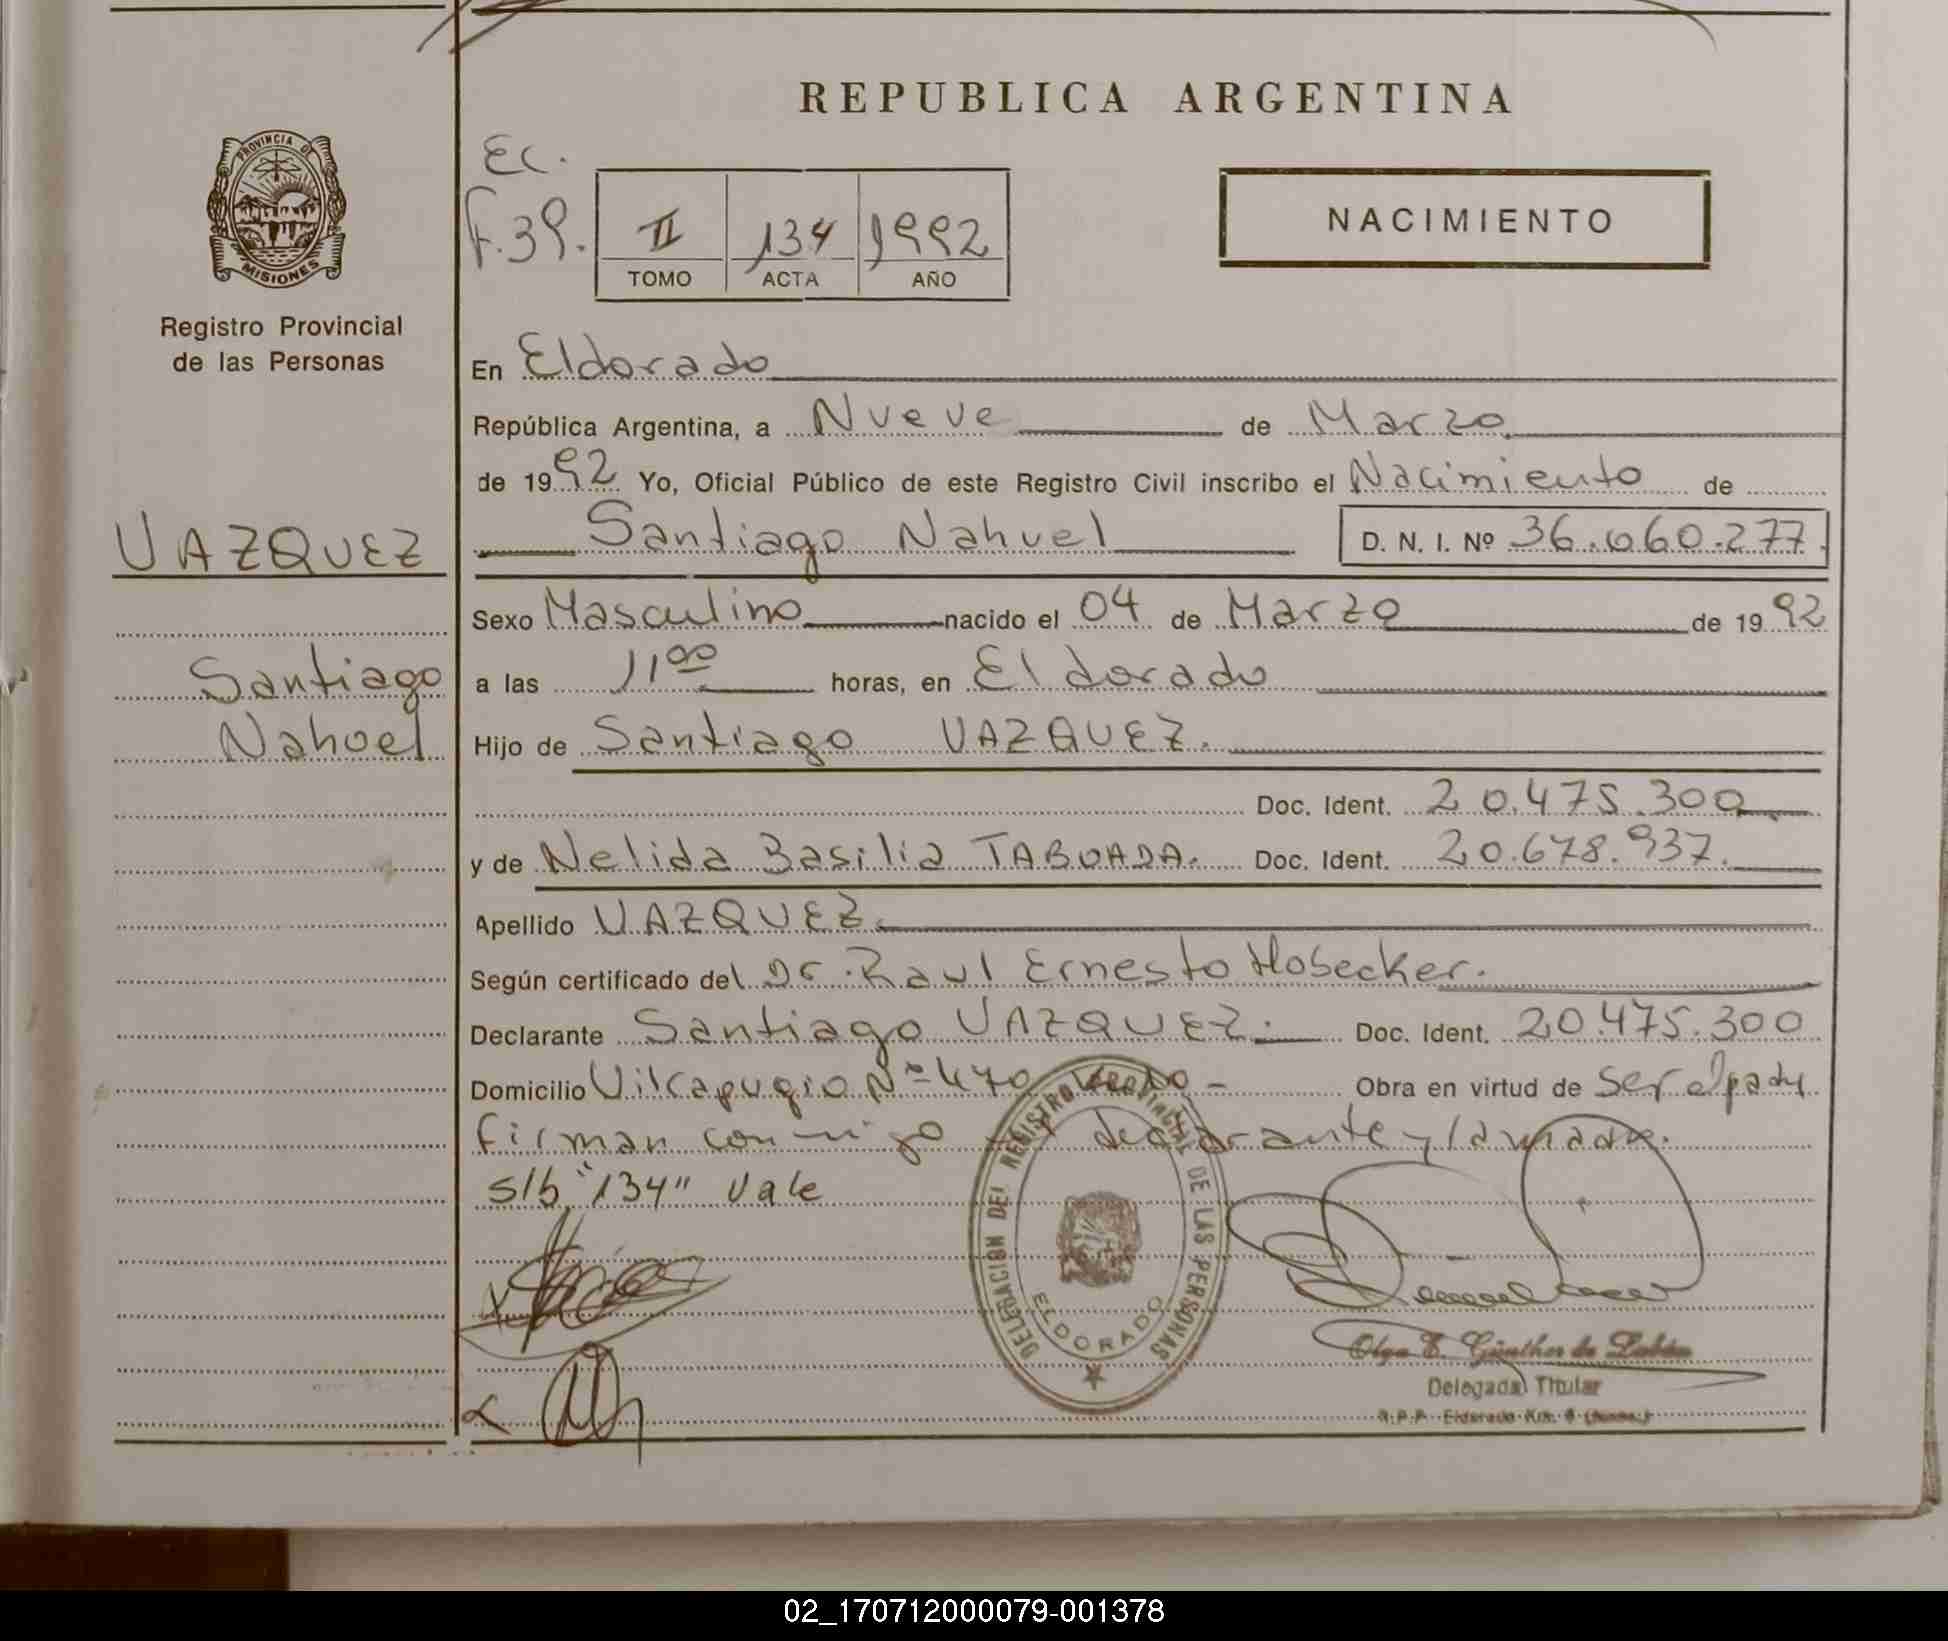 REPUBLICA ARGENTINA
PROVINCIA DE
MISIONES
Registro Provincial
de las Personas
Ec.
F.39.
II 134 1992
TOMO ACTA AÑO
NACIMIENTO
En Eldorado
República Argentina, a Nueve de Marzo
de 1992 Yo, Oficial Público de este Registro Civil inscribo el Nacimiento de
VAZQUEZ
Santiago Nahuel D. N. I. Nº 36.060.277.
Sexo Masculino nacido el 04 de Marzo de 1992
Santiago
Nahuel
a las 11 00 horas, en Eldorado
Hijo de Santiago VAZQUEZ.
Doc. Ident. 20.475.300
y de Nelida Basilia TABOADA. Doc. Ident. 20.678.937.
Apellido VAZQUEZ.
Según certificado del Dr. Raul Ernesto Hobecker.
Declarante Santiago VAZQUEZ. Doc. Ident. 20.475.300
Domicilio Vilcapugio Nº 470 Obra en virtud de ser el padre
firman conmigo el declarante y la madre.
s/b "134" Vale
DELEGACION DEL REGISTRO PROVINCIAL DE LAS PERSONAS
ELDORADO
Olga E. Günther de
Delegada Titular
R.P.P. Eldorado Km. 9
02_170712000079-001378